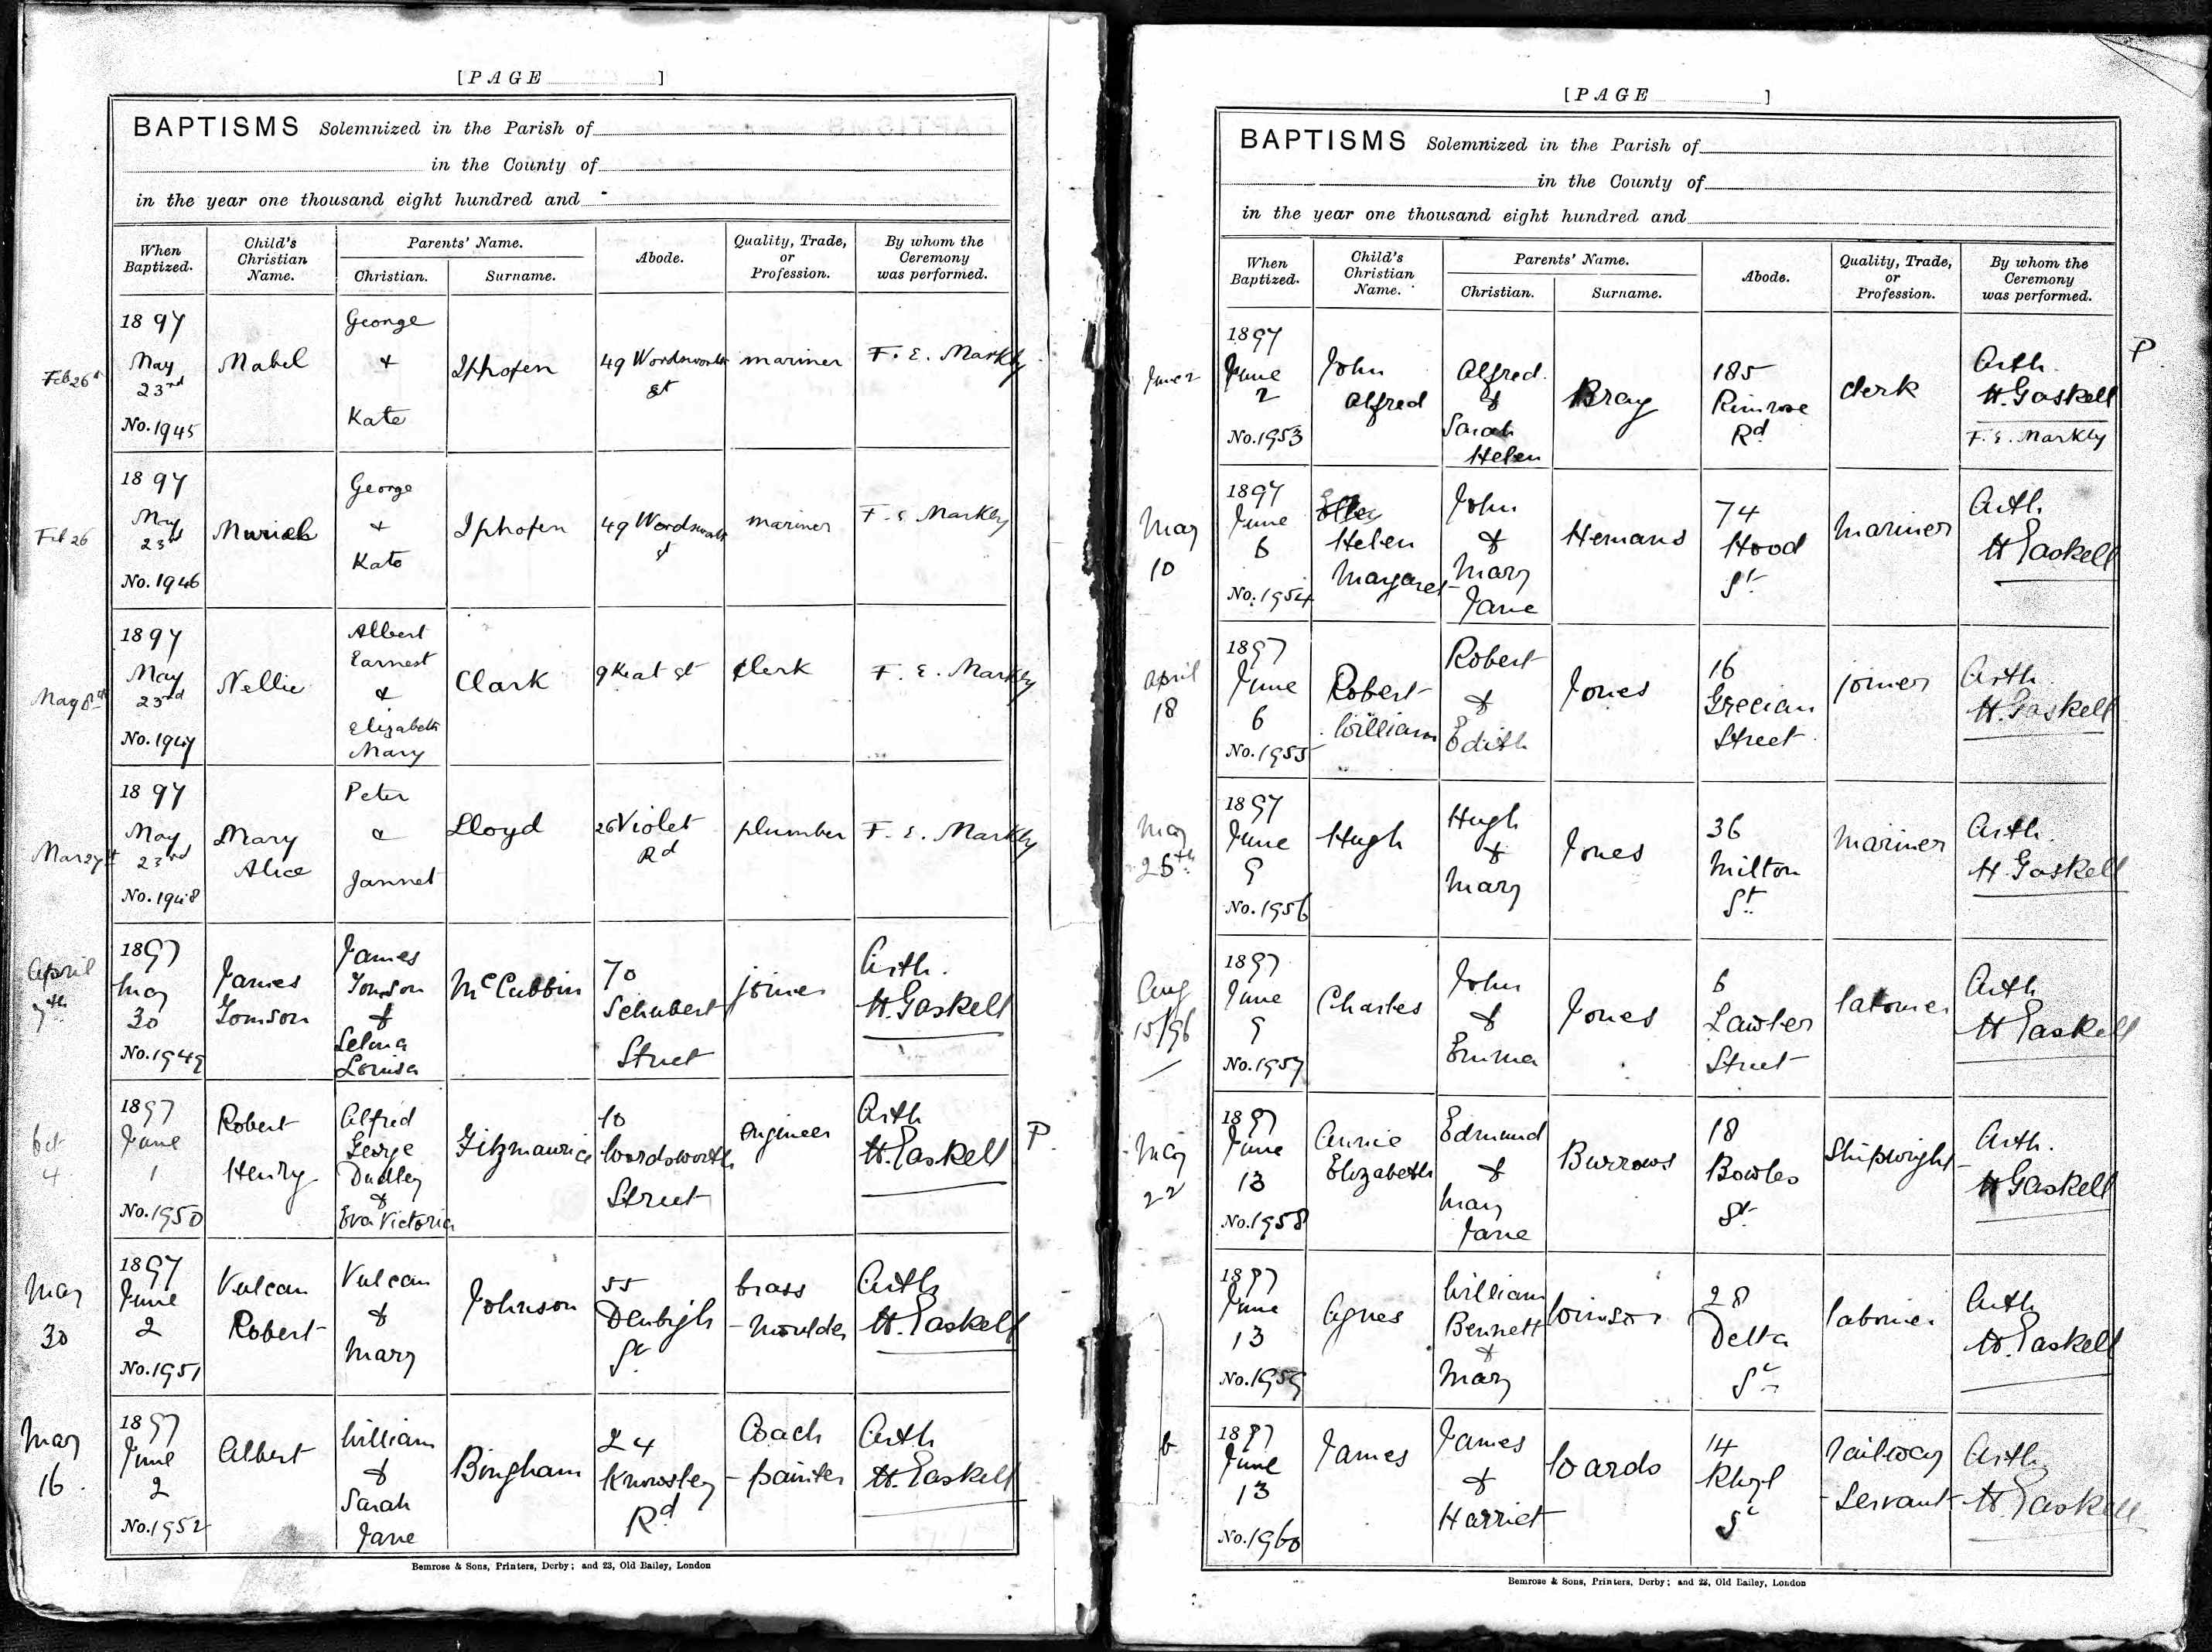 [PAGE ]
BAPTISMS Solemnized in the Parish of
in the County of
in the year one thousand eight hundred and
When Baptized.
Child's Christian Name.
Parents' Name.
Christian.
Surname.
Abode.
Quality, Trade, or Profession.
By whom the Ceremony was performed.
Feb 26th
1897
May
23rd
No. 1945
Mabel
George
+
Kate
Iphofen
49 Wordsworth
St
mariner
F. E. Markby
Feb 26
1897
May
23rd
No. 1946
Muriel
George
+
Kate
Iphofen
49 Wordsworth
St
mariner
F. E. Markby
May 8th
1897
May
23rd
No. 1947
Nellie
Albert
Earnest
&
Elizabeth
Mary
Clark
9 Keat St
Clerk
F. E. Markby
Mar 27th
1897
May
23rd
No. 1948
Mary
Alice
Peter
&
Jannet
Lloyd
26 Violet
Rd
plumber
F. E. Markby
April
7th
1897
May
30
No. 1949
James
Tomson
James
Tomson
&
Selma
Louisa
McCubbin
70
Schubert
Street
joiner
Arth.
H. Gaskell
Oct
4
1897
June
1
No. 1950
Robert
Henry
Alfred
George
Dudley
&
Eva Victoria
Fitzmaurice
10
Wordsworth
Street
Engineer
Arth
H. Gaskell
P
May
30
1897
June
2
No. 1951
Vulcan
Robert
Vulcan
&
Mary
Johnson
55
Denbigh
St
brass
-moulder
Arth
H. Gaskell
May
16
1897
June
2
No. 1952
Albert
William
&
Sarah
Jane
Bingham
24
Knowsley
Rd
Coach
-painter
Arth
H. Gaskell
Bemrose & Sons, Printers, Derby; and 23, Old Bailey, London
[PAGE ]
BAPTISMS Solemnized in the Parish of
in the County of
in the year one thousand eight hundred and
When Baptized.
Child's Christian Name.
Parents' Name.
Christian.
Surname.
Abode.
Quality, Trade, or Profession.
By whom the Ceremony was performed.
June 2
1897
June
2
No. 1953
John
Alfred
Alfred
&
Sarah
Helen
Bray
185
Rimrose
Rd
Clerk
Arth.
H. Gaskell
F. E. Markby
P
May
10
1897
June
6
No. 1954
Helen
Margaret
John
&
Mary
Jane
Hemans
74
Hood
St
Mariner
Arth
H Gaskell
April
18
1897
June
6
No. 1955
Robert
William
Robert
&
Edith
Jones
16
Grecian
Street
joiner
Arth.
H. Gaskell
May
25th
1897
June
9
No. 1956
Hugh
Hugh
&
Mary
Jones
36
Milton
St
Mariner
Arth.
H. Gaskell
Aug
15/96
1897
June
9
No. 1957
Charles
John
&
Emma
Jones
6
Lawler
Street
labourer
Arth
H Gaskell
May
22
1897
June
13
No. 1958
Annie
Elizabeth
Edmund
&
Mary
Jane
Burrows
18
Bowles
St
Shipwright
Arth.
H Gaskell
1897
June
13
No. 1959
Agnes
William
Bennett
&
Mary
28
Delta
St
labourer
Arth
H. Gaskell
6
1897
June
13
No. 1960
James
James
&
Harriet
Wards
14
Rhyl
St
railway
-Servant
Arth
H Gaskell
Bemrose & Sons, Printers, Derby; and 23, Old Bailey, London